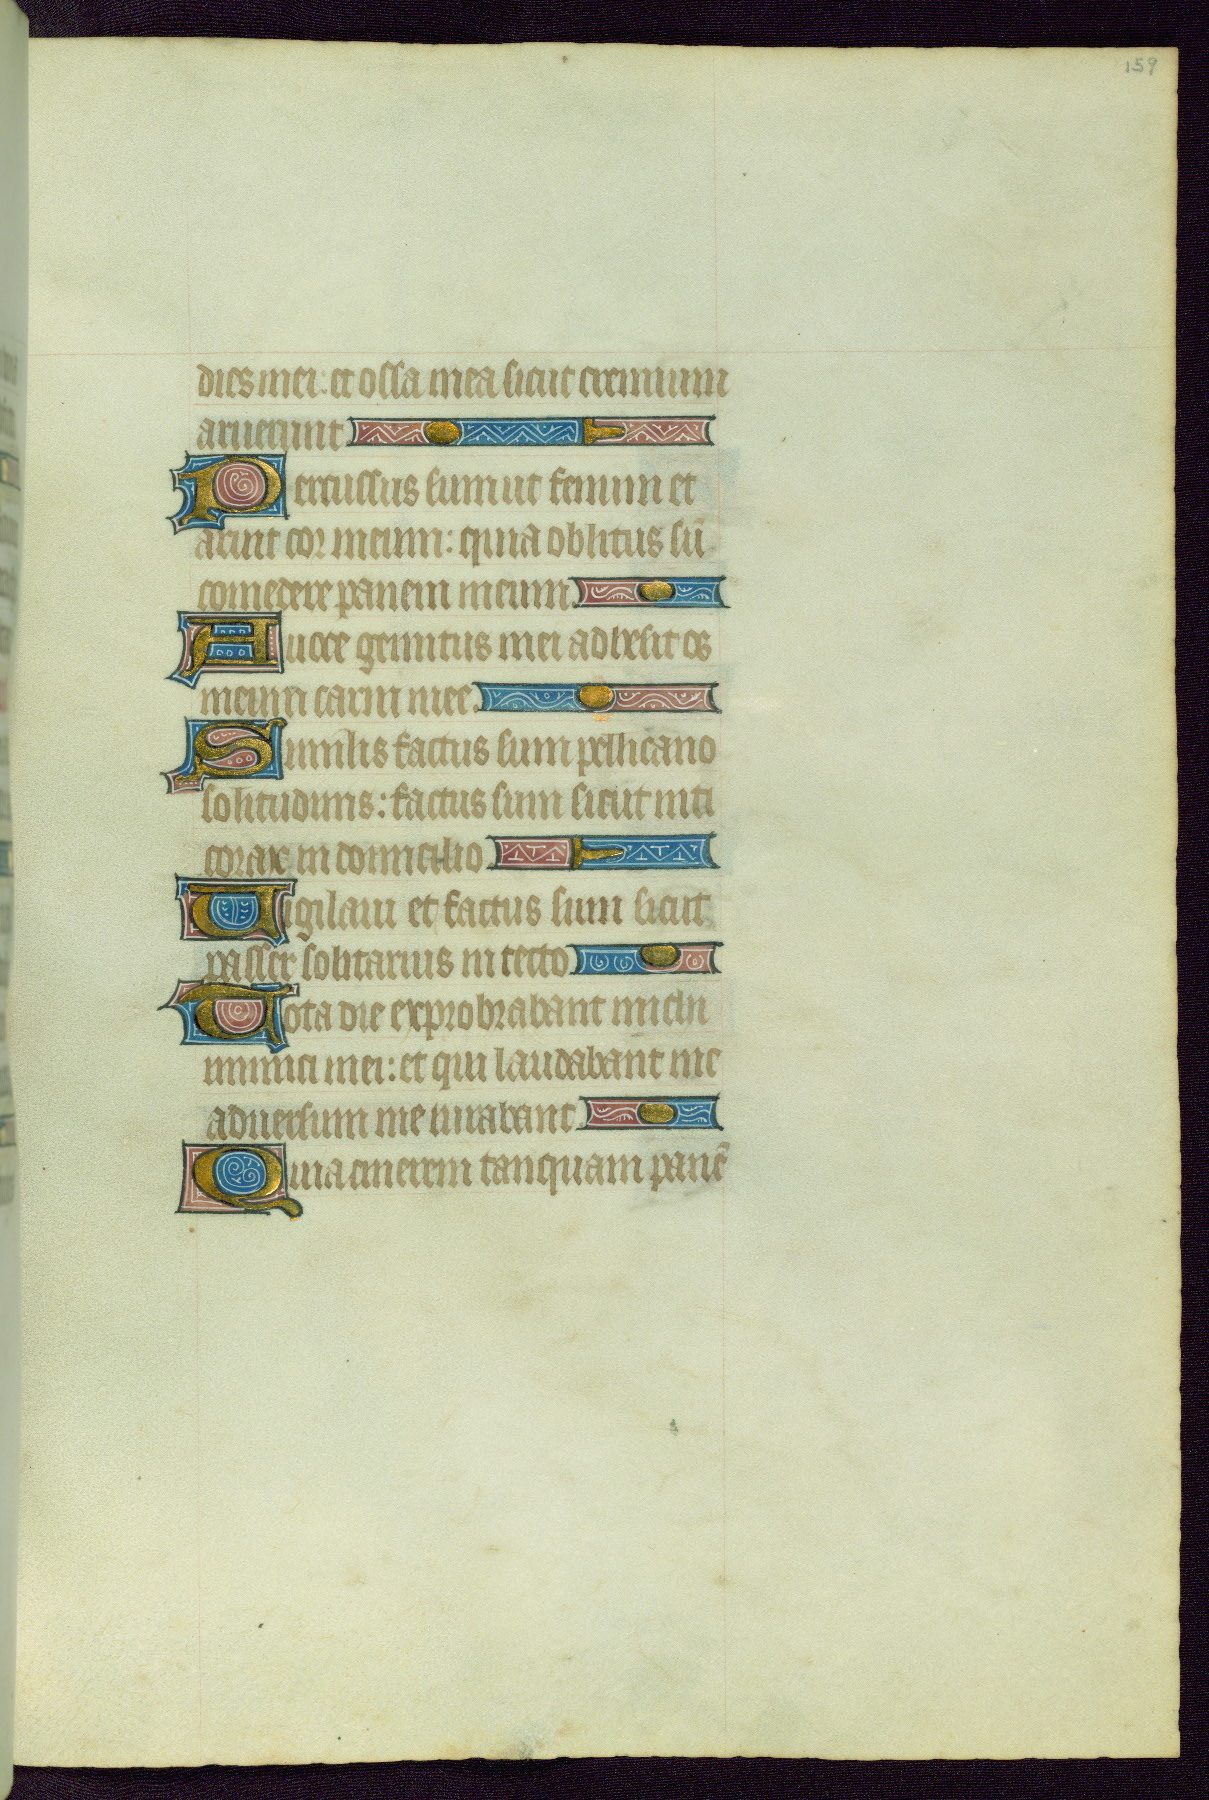 159
dies mei: et ossa mea sicut cremium
aruerunt
Percussus sum ut fenum et
aruit cor meum: quia oblitus sū
comedere panem meum.
A uoce gemitus mei adhesit os
meum carni mee.
Similis factus sum pellicano
solitudinis: factus sum sicut niti
corax in domicilio
Uigilaui et factus sum sicut
passer solitarius in tecto
Tota die exprobrabant michi
inimici mei: et qui laudabant me
aduersum me iurabant.
Quia cinerem tanquam panē